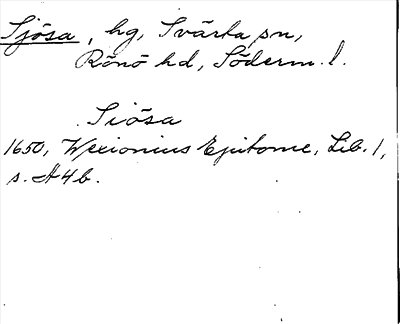 Sjösa, hg, Svärta sn,
Rönö hd, Söderm. l.
Siösa
1650, Wexionius Epitome, Lib. 1,
s. A4b.